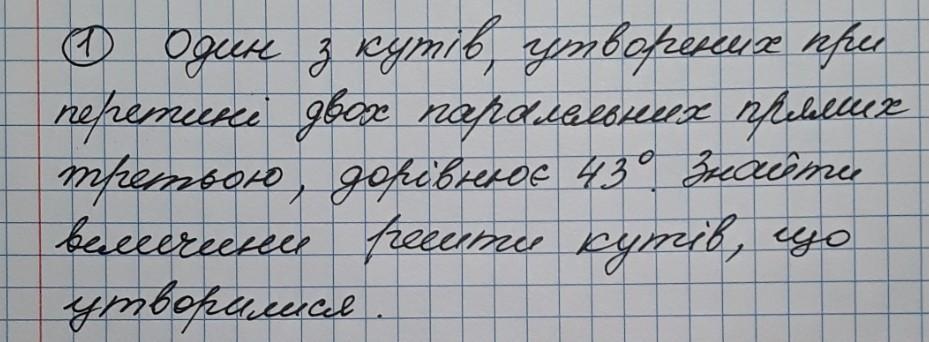 ① Один з кутів, утворених при
перетині двох паралельних прямих
третьою, дорівнює 43°. Знайти
величини решти кутів, що
утворилися.